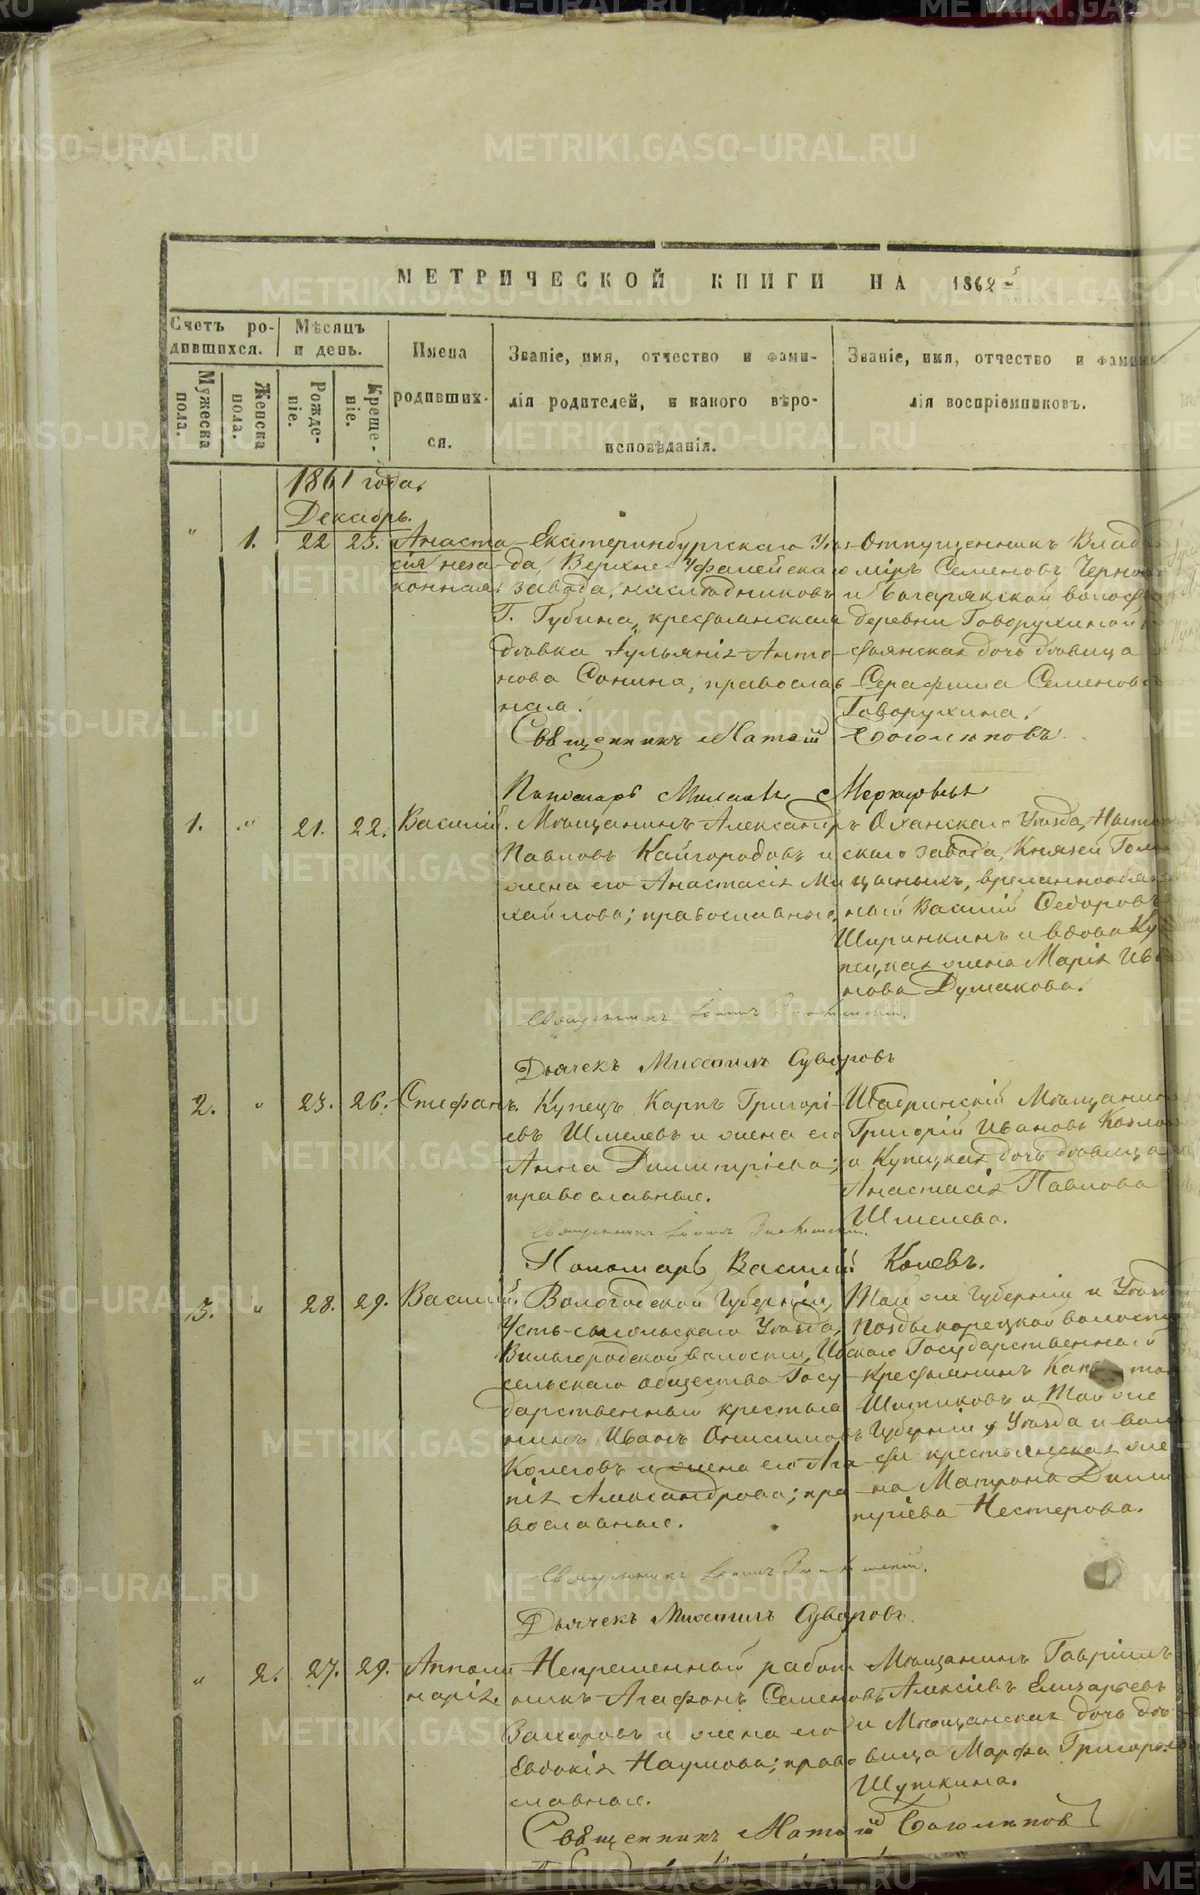 МЕТРИЧЕСКОЙ КНИГИ НА 1862 й
Счетъ ро-
дившихся.
Мѣсяцъ
и день.
Мужеска пола.
Женска пола.
Рожде-
ніе.
Креще-
ніе.
Имена
родивших-
ся.
Званіе, имя, отчество и фами-
лія родителей, и какого вѣро-
исповѣданія.
Званіе, имя, отчество и фами
лія воспріемниковъ.
1861 года.
Декабрь.
" 1. 22 23. Анаста
сія неза-
конная.
Екатеринбургскаго Уѣз-
да, Верхне-Уфалейскаго
завода, наслѣдниковъ
Г. Губина, крестьянская
дѣвка Іульянія Анто-
нова Сонина, православ
ная.
Отпущенникъ Влад
міръ Семеновъ Черно
и Багарякской волос
деревни Говорухиной
стьянская дочь дѣвица
Серафима Семенов
Говорухина.
Священникъ Матѳій Боголюповъ.
Пономарь
1. " 21. 22. Василій.
Мѣщанинъ Александръ
Павловъ Кайгородовъ и
жена его Анастасія Ми
хайлова; православные.
Оханскаго Уѣзда, Нытв
скаго завода, Князей Гол
цыныхъ, временнообяз
ный Василій Ѳедоровъ
Ширинкинъ и вдова Ку
пецкая жена Марія Ива
нова Думакова.
Священникъ Іоаннъ
Дьячекъ Михаилъ Суворовъ
2. " 23. 26. Стефанъ.
Купецъ Карпъ Григорі-
евъ Шмелевъ и жена его
Анна Димитріева;
православные.
Шадринскій Мѣщанин
Григорій Ивановъ Козло
и Купецкая дочь дѣвица
Анастасія Павлова
Шмелева.
Священникъ Іоаннъ
Пономарь Василій Колевъ.
3. " 28. 29. Василій.
Вологодской Губерніи,
Усть-сысольскаго Уѣзда,
Вильгородской волости, Иб
сельскаго общества Госу-
дарственный крестья
нинъ Иванъ Онисимовъ
Колеговъ и жена его Ага
пія Александрова; пра
вославные.
Той же Губерніи и Уѣзд
волости
скаго Государственнаго
Крестьянинъ
Шишниковъ и Той же
Губерніи, Уѣзда и воло
сти крестьянская же
на Матрона Дими
тріева Нестерова.
Священникъ Іоаннъ
Дьячекъ Михаилъ Суворовъ.
" 2. 27. 29. Аполли
нарія.
Непременный работ
никъ Агафонъ Семеновъ
Захаровъ и жена его
Евдокія Наумова; право
славные.
Мѣщанинъ Гавріилъ
Алексіевъ Елизарьевъ
и Мѣщанская дочь дѣ
вица Марфа Григорье
Шуткина.
Священникъ Матѳій Боголюповъ
METRIKI.GASO-URAL.RU